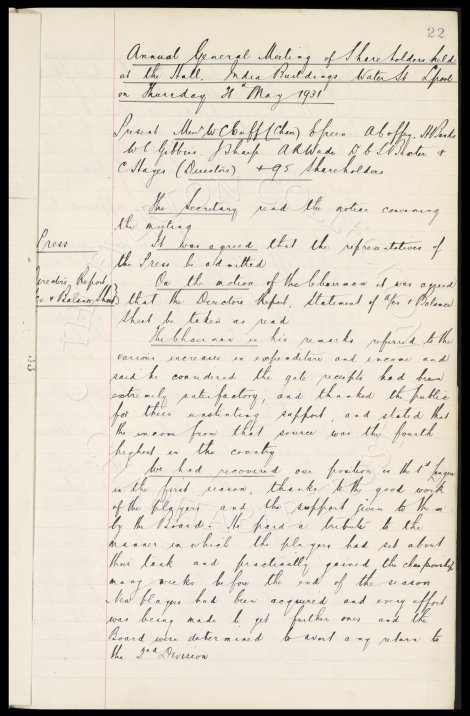 22
Annual General Meeting of Shareholders held
at the Hall, India Buildings Water St L'pool
on Thursday 21st May 1931
Present Messrs W C Cuff (Chair) E Green A Coffey,
W C Gibbins J Sharp A R Wade D &
C S Hayes (Directors) + 95 Shareholders
The Secretary read the notice convening
the meeting
Press
It was agreed that the representatives of
the Press be admitted
Directors Report
& Balance Sheet
On the motion of the Chairman it was agreed
that the Directors Report, Statement of a/cs & Balance
Sheet be taken as read
The Chairman in his remarks referred to the
various increases in expenditure and income and
said he considered the gate receipts had been
extremely satisfactory, and thanked the public
for their unstinting support, and stated that
the income from that source was the fourth
highest in the country
We had recovered our position in the 1st League
in the first season, thanks to the good work
of the players and the support given to them
by the Board. He paid a tribute to the
manner in which the players had set about
their task and practically gained the championship
many weeks before the end of the season
New players had been acquired and every effort
was being made to get further ones and the
Board were determined to avert any return to
the 2nd Division
33